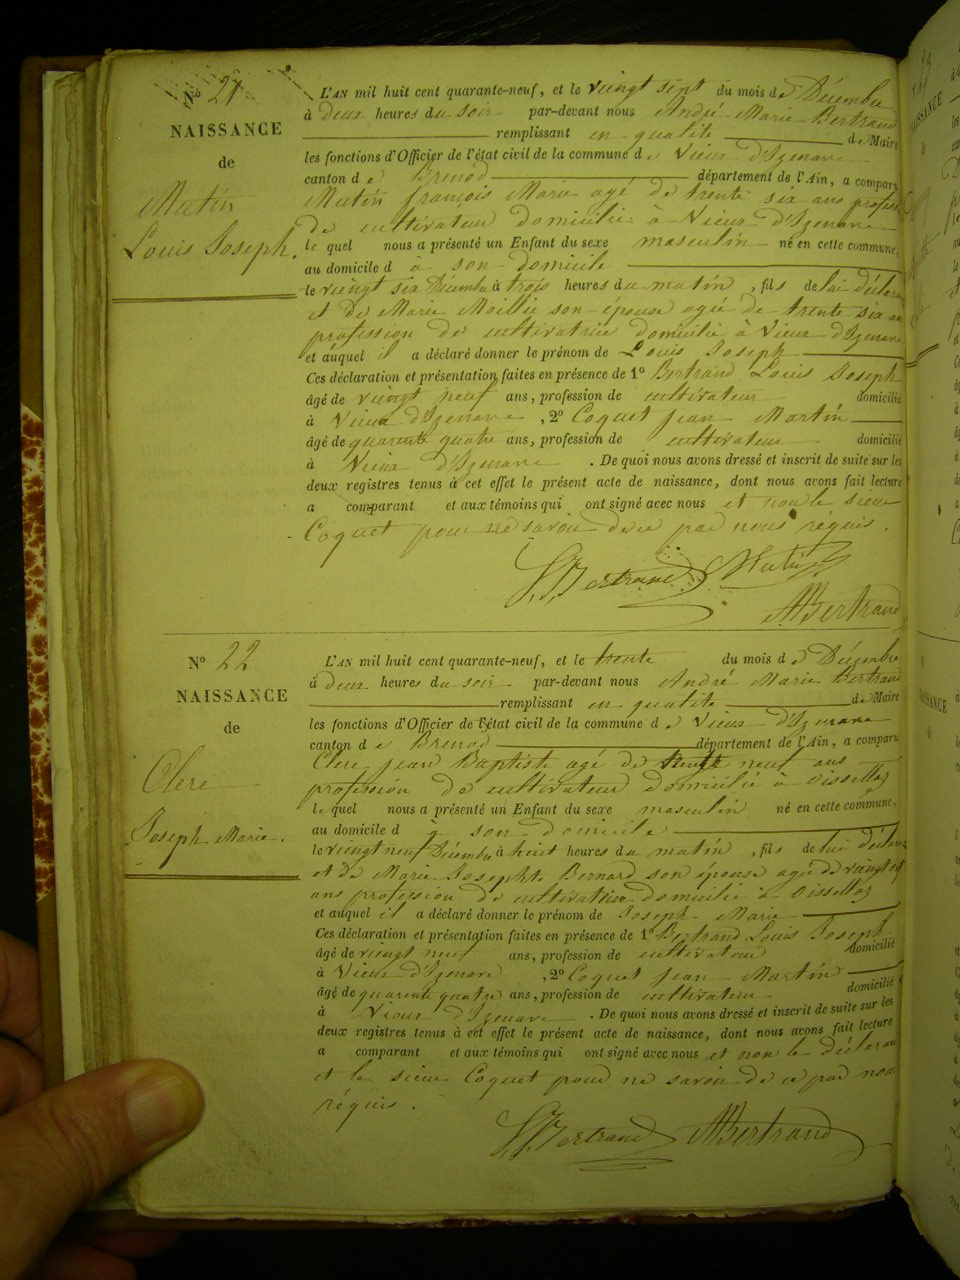 N° 21
NAISSANCE
de
Mutin
Louis Joseph.
L'AN mil huit cent quarante-neuf, et le vingt sept du mois de Décembre
à deux heures du soir par-devant nous André Marie Bertrand
remplissant en qualité de Maire
les fonctions d'Officier de l'état civil de la commune de Vieux d'Izenave
canton de Brenod département de l'Ain, a comparu
Mutin françois Marie agé de trente six ans profess
de cultivateur domicilié à Vieux d'Izenave
le quel nous a présenté un Enfant du sexe masculin né en cette commune,
au domicile d à son domicile
le vingt six Décembre à trois heures du matin, fils de lui déclara
et de Marie Moillie son épouse agée de trente six an
profession de cultivatrice domicilié à Vieux d'Izenave
et auquel il a déclaré donner le prénom de Louis Joseph
Ces déclaration et présentation faites en présence de 1° Bertrand Louis Joseph
âgé de vingt neuf ans, profession de cultivateur domicilié
à Vieux d'Izenave, 2° Coquet Jean Martin
âgé de quarente quatre ans, profession de cultivateur domicilié
à Vieux d'Izenave. De quoi nous avons dressé et inscrit de suite sur les
deux registres tenus à cet effet le présent acte de naissance, dont nous avons fait lecture
a comparant et aux témoins qui ont signé avec nous et non le sieur
Coquet pour ne savoir de ce par nous réquis.
L. J. Bertrand Mutin
AMBertrand
N° 22
NAISSANCE
de
Clere
Joseph Marie.
L'AN mil huit cent quarante-neuf, et le trente du mois de Décembre
à deux heures du soir par-devant nous André Marie Bertrand
remplissant en qualité de Maire
les fonctions d'Officier de l'état civil de la commune de Vieux d'Izenave
canton de Brenod département de l'Ain, a comparu
Clere jean Baptiste agé de trente neuf ans
profession de cultivateur domicilié à Oissellaz
le quel nous a présenté un Enfant du sexe masculin né en cette commune,
au domicile d à son domicile
le vingt neuf Décembre à huit heures du matin, fils de lui déclara
et de Marie Josephte Bernard son épouse agée de vingt sept
ans profession de cultivatrice domicilié à Oissellaz
et auquel il a déclaré donner le prénom de Joseph Marie
Ces déclaration et présentation faites en présence de 1° Bertrand Louis Joseph
âgé de vingt neuf ans, profession de cultivateur domicilié
à Vieux d'Izenave, 2° Coquet Jean Martin
âgé de quarente quatre ans, profession de cultivateur domicilié
à Vieux d'Izenave. De quoi nous avons dressé et inscrit de suite sur les
deux registres tenus à cet effet le présent acte de naissance, dont nous avons fait lecture
a comparant et aux témoins qui ont signé avec nous et non le déclarant
et le sieur Coquet pour ne savoir de ce par nous
réquis.
L. J. Bertrand AMBertrand